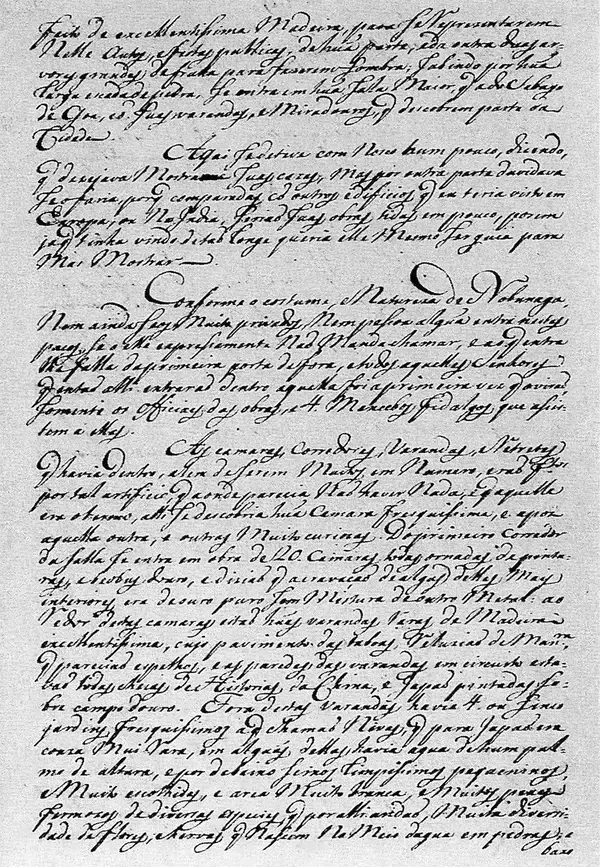 feito de excellentissima Madeira, para se representarem
Nelle Autos, e festas publicas, de hũa parte, e da outra duas ar-
vores grandes de fruta para fazerem sombra; subindo por hũa
larga escada de pedra, se entra em hũa salla Maior, q̃ a do Sabayo
de Goa, cõ suas varandas, e Miradouros, q̃ descobrem parte da
Cidade
Aqui se deteve com Nosco hum pouco, dizendo,
q̃ desejava Mostrarme suas cazas, Mas por outra parte duvidava
se o faria, porq̃ comparadas cõ outros edificios q̃ eu teria visto em
Europa, ou Na India, serião suas obras tidas em pouco, porem
ja q̃ tinha vindo de tão longe queria elle Mesmo ser guia para
Mas Mostrar
Conforme o costume, e Natureza de Nobunaga,
Nem ainda seos Muito privados, Nem pessoa algũa entra nestes
paços, se o elle expressamente Não Manda chamar, e ao q̃ entra
lhe falla da primeira porta de fora, e todos aquelles Senhores
q̃ então alli entrarão dentro aquella foi a primeira vez q̃ o virão
somente os Officiaes das obras, e 4. Mancebos fidalgos, que assis-
tem a elles.
As camaras, Corredores, Varandas, e Retretes
q̃ havia dentro, alem de serem Muitos em Numero, erão feitos
por tal artificio q̃ aonde parecia Não haver Nada, e q̃ aquelle
era o termo, alli se descobria hũa Camara fresquissima, e apoz
aquella outra, e outras Muito curiosas. Do primeiro Corredor
da salla se entra em obra de 20. Camaras todas ornadas de pintu-
ras, e beobus douro, e dizião q̃ a cravação de algũas dellas Mais
interiores era de ouro puro sem Mistura de outro Metal: ao
redor destas camaras estão hũas varandas raras de Madeira
excellentissima, cujo pavimento das taboas, reluzião de Manra
q̃ parecião espelhos, e as paredes das varandas em circuito esta-
vão todas cheias de Historias da China, e Japão pintadas so-
bre campo douro. Fora destas varandas havia 4. ou sinco
jardins fresquissimos a q̃ chamão Nivas, q̃ para Japão era
couza Mui rara, em alguns delles havia agua de hum pal-
mo de altura, e por debaixo seixos limpissimos pequeninos,
e Muito escolhidos, e area Muito branca, e Muitos peixes
fermosos de diversas especies q̃ por alli andão, Muita diversi-
dade de flores, e hervas q̃ Nascem No Meio dagua em pedras, e
baxo